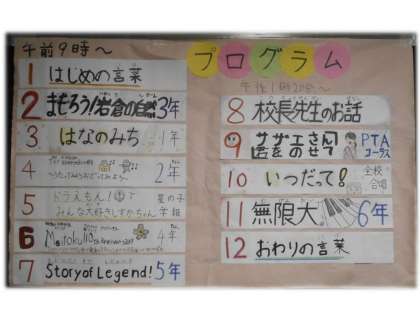 午前9時～
プログラム
1 はじめの言葉
2 まもろう!岩倉の自然 3年
3 はなのみち 1年
4 2年
5 ドラえもん!
みんな大好きしずかちゃん 星の子学級
6 4年
7 Story of Legend! 5年
8 校長先生のお話
9 サザエさん
窓をのせて PTAコーラス
10 いつだって! 全校合唱
11 無限大 6年
12 おわりの言葉